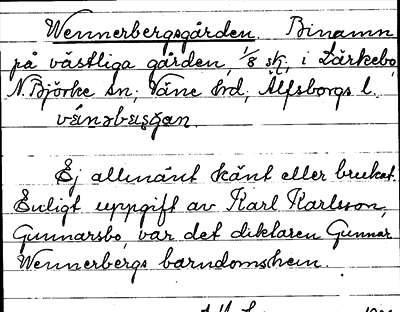 Wennerbergsgården. Binamn
på västliga gården, 1/8 sk, i Lärkebo,
N. Björke sn, Väne hrd, Älfsborgs l.
Ej allmänt känt eller brukat.
Enligt uppgift av Karl Karlsson,
Gunnarsbo, var det diktaren Gunnar
Wennerbergs barndomshem.